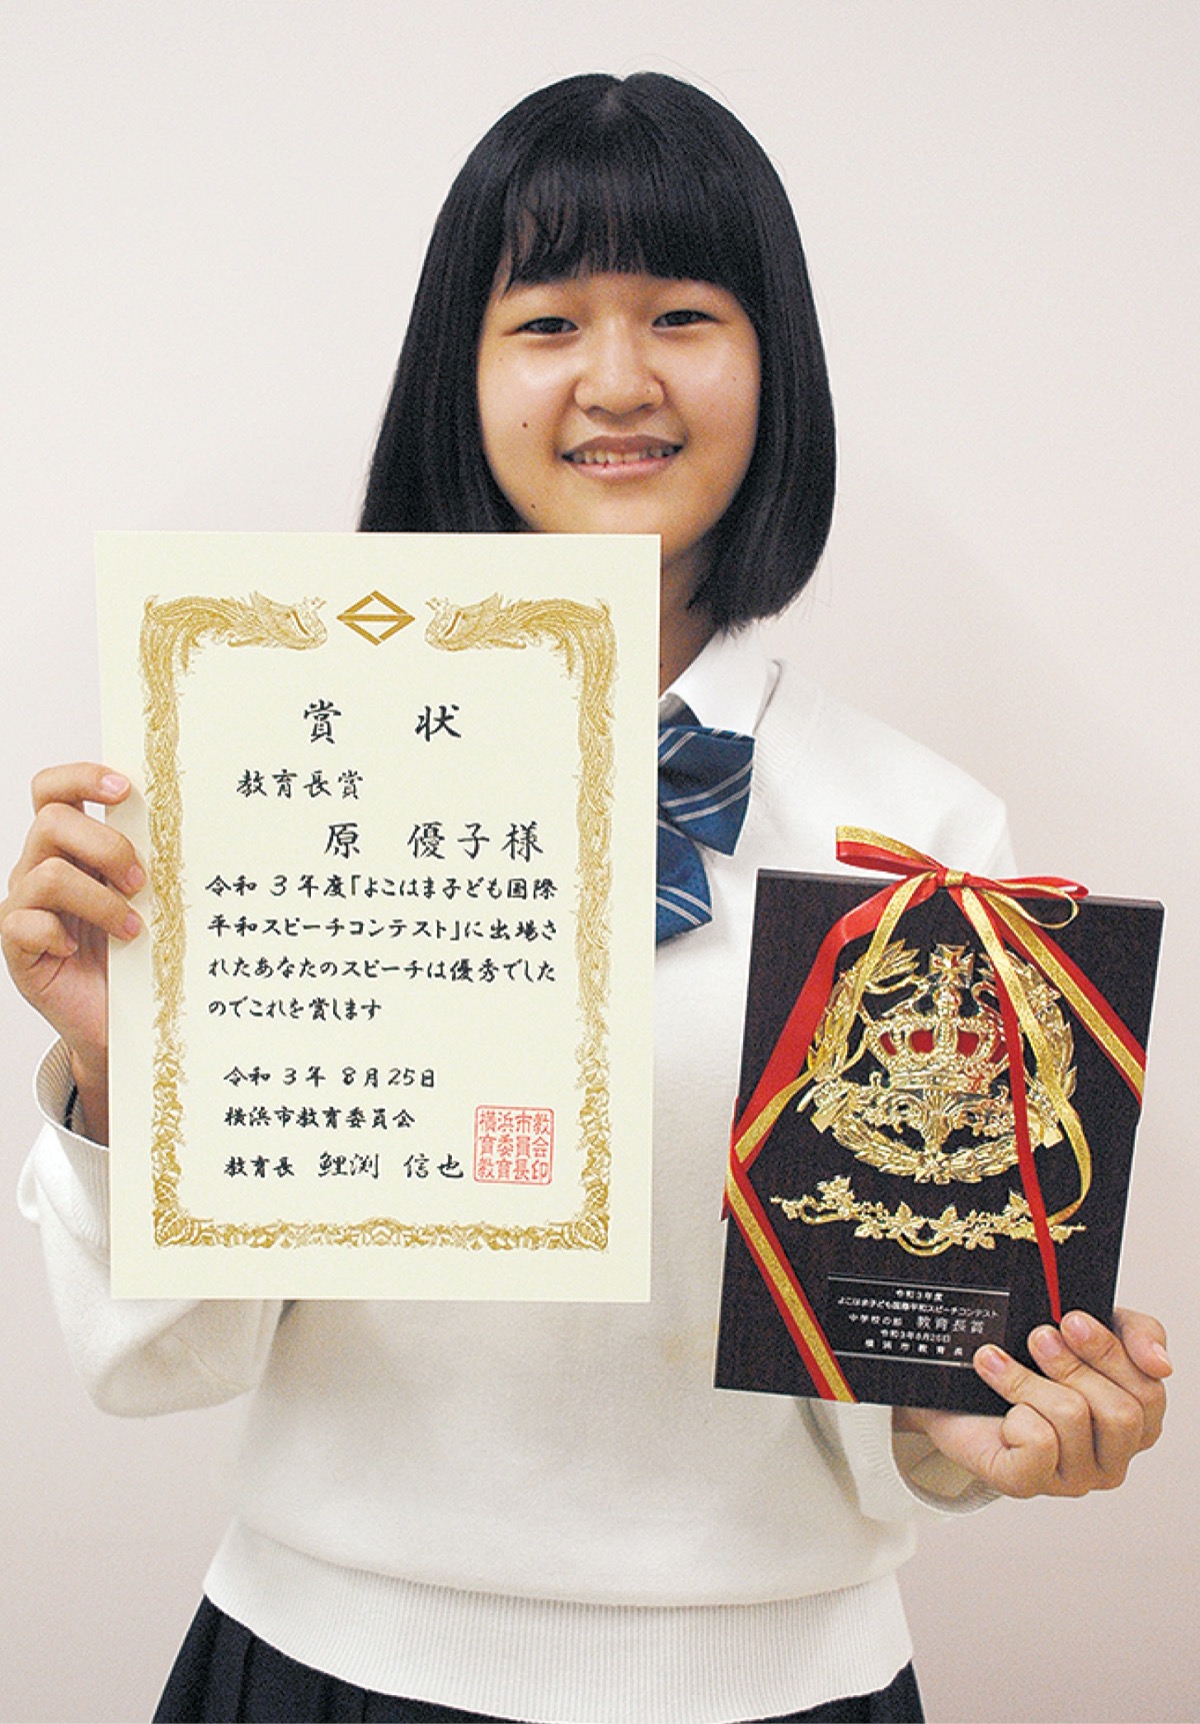 賞 状
教育長賞
原 優子様
令和 3 年度「よこはま子ども国際
平和スピーチコンテスト」に出場さ
れたあなたのスピーチは優秀でした
のでこれを賞します
令和 3 年 8 月 25 日
横浜市教育委員会
教育長 鯉渕 信也
横浜市教
育委員会
教育長印
令和3年度
よこはま子ども国際平和スピーチコンテスト
中学校の部 教育長賞
令和3年8月26日
横浜市教育長